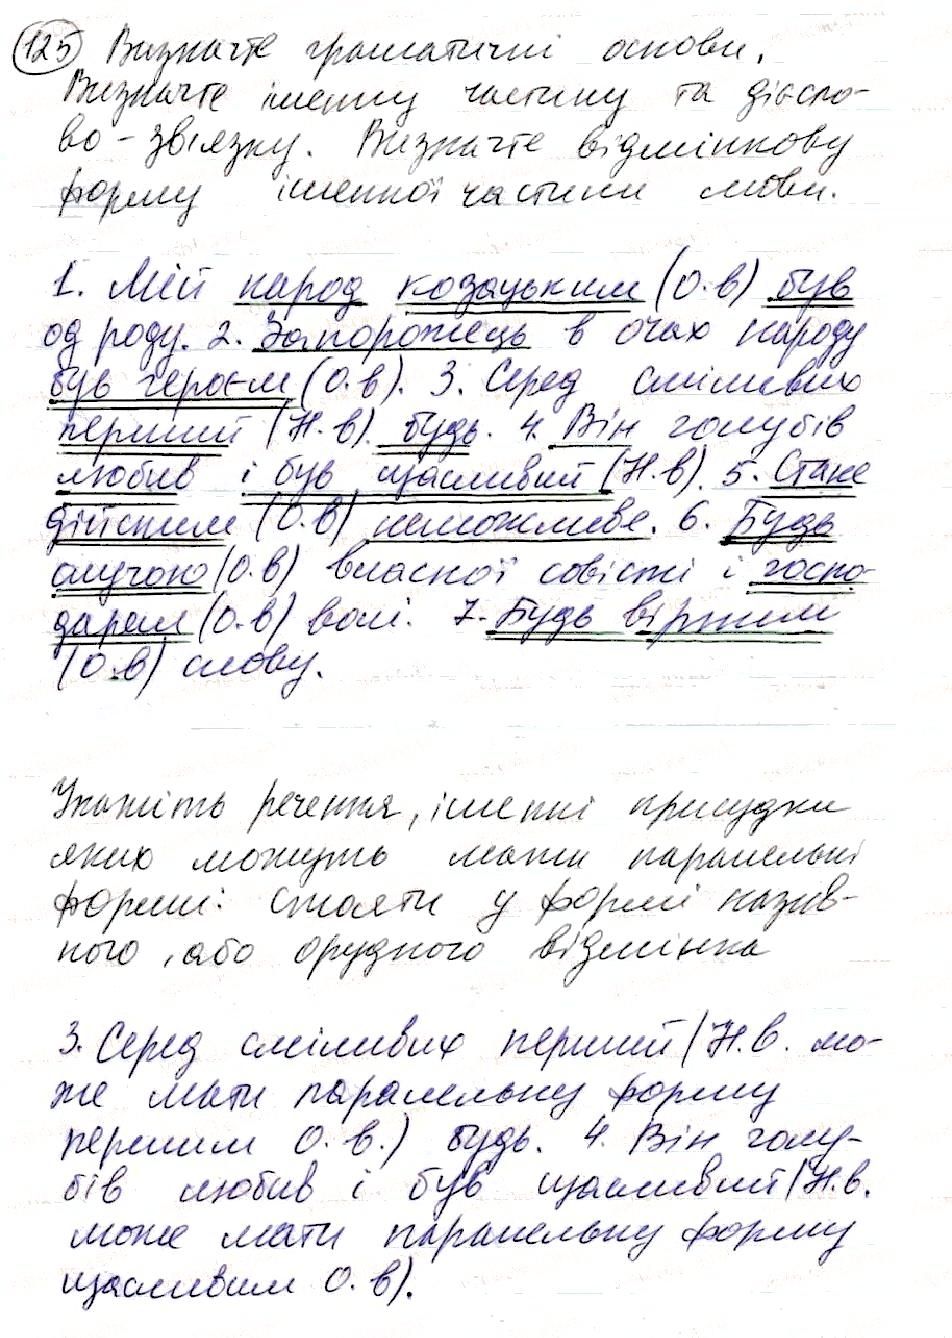 125 Визначте граматичні основи.
Визначте іменну частину та дієсло-
во-зв'язку. Визначте відмінкову
форму іменної частини мови.
1. Мій народ козацьким (О.в) був
од роду. 2. Запорожець в очах народу
був героєм (О.в). 3. Серед сміливих
перший (Н.в). будь. 4. Він голубів
любив і був щасливий (Н.в). 5. Стане
дійсним (О.в) неможливе. 6. Будь
слугою (О.в) власної совісті і госпо-
дарем (О.в) волі. 7. Будь вірним
(О.в) слову.
Укажіть речення, іменні присудки
яких можуть мати паралельні
форми: стояти у формі назив-
ного, або орудного відмінка
3. Серед сміливих перший (Н.в. мо-
же мати паралельну форму
першим О.в.) будь. 4. Він голу-
бів любив і був щасливий (Н.в.
може мати паралельну форму
щасливим О.в).